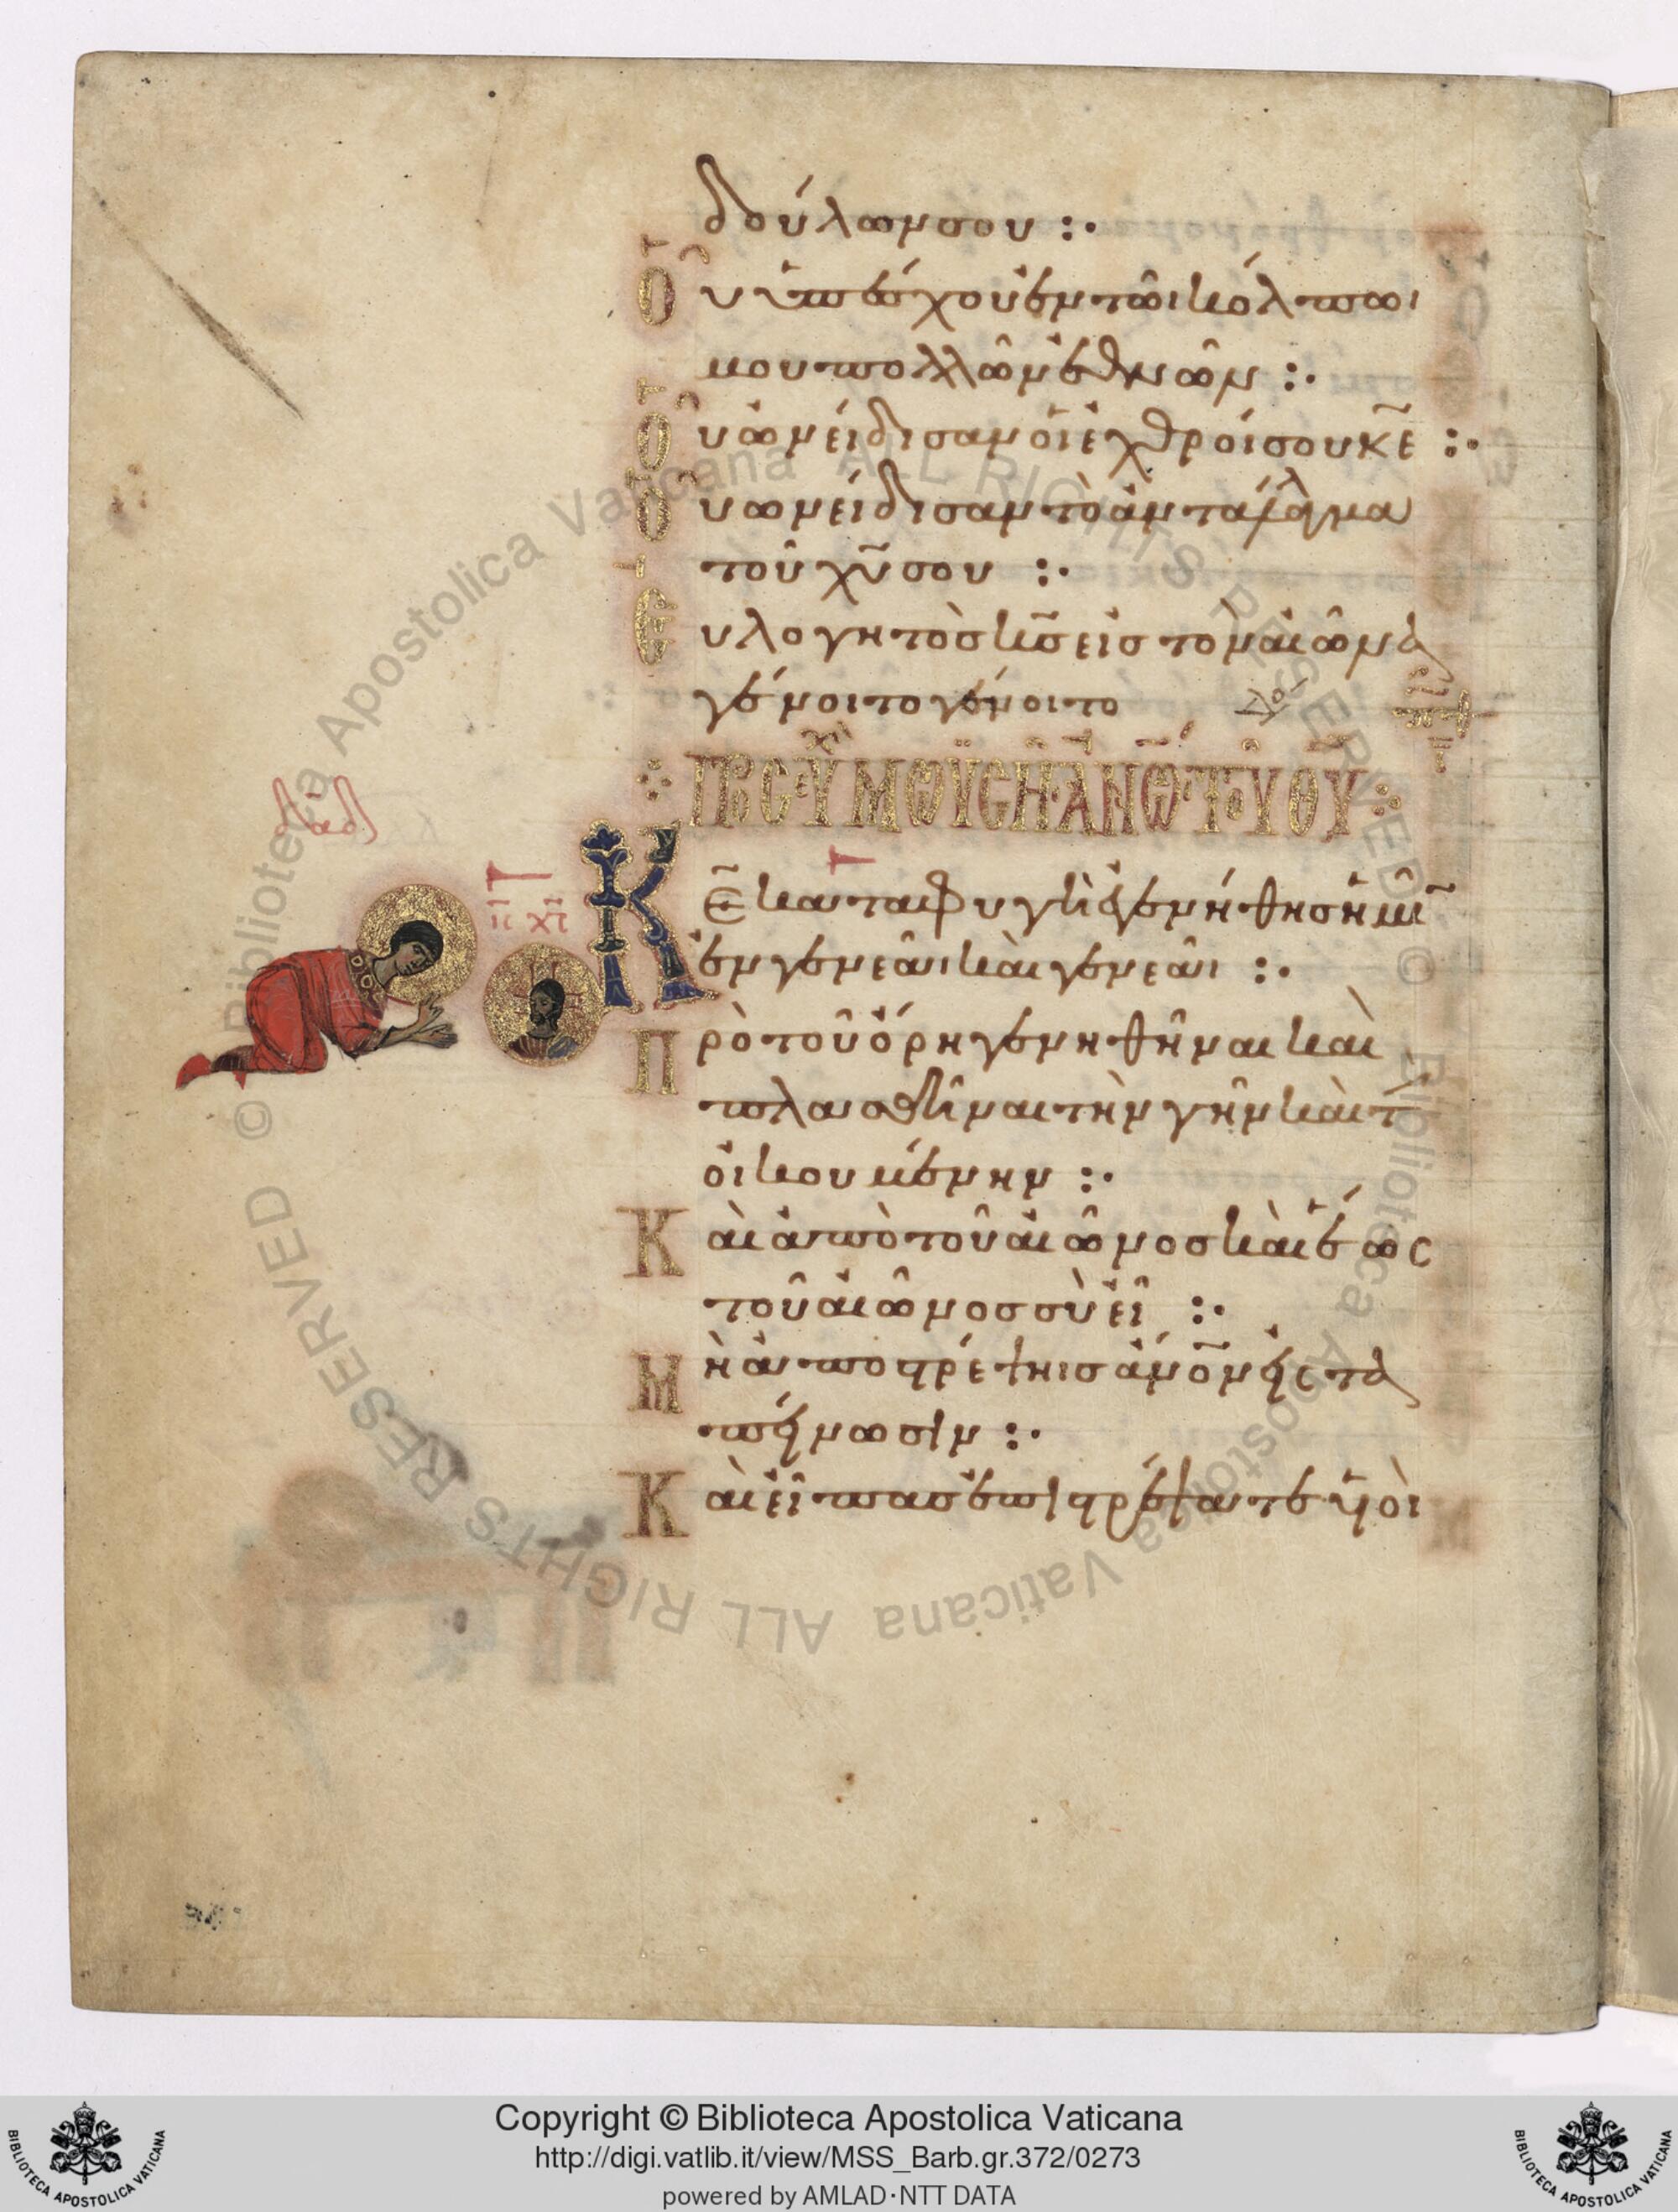 δούλων σου :·
Οὗ ὑπέσχον ἐν τῶι κόλπωι
μου πολλῶν ἐθνῶν :·
Οὗ ὠνείδισαν οἱ ἐχθροί σου κε :·
Οὗ ὠνείδισαν τὸ ἀντάλλαγμα
τοῦ χυ σου :·
Εὐλογητὸς κς εἰς τὸν αἰῶνα
γένοιτο γένοιτο
ΠΡΟΣΕΥΧΗ ΜΩΥΣΗ ΑΝΟΥ ΤΟΥ ΘΥ
δαδ
Κε καταφυγὴ ἐγενήθης ἡμῖ
ιη χι
ἐν γενεᾶι καὶ γενεᾶι :·
Πρὸ τοῦ ὄρη γενηθῆναι καὶ
πλασθῆναι τὴν γῆν καὶ τ
οἰκουμένην :·
Καὶ ἀπὸ τοῦ αἰῶνος καὶ ἕως
τοῦ αἰῶνος σὺ εἶ :·
Μὴ ἀποστρέψηις ἄνον εἰς τα
πείνωσιν :·
Καὶ εἶπας ἐπιστρέψατε υἱοὶ
© Biblioteca Apostolica Vaticana ALL RIGHTS RESERVED © Biblioteca Apostolica Vaticana ALL RIGHTS RESERVED
Copyright © Biblioteca Apostolica Vaticana
http://digi.vatlib.it/view/MSS_Barb.gr.372/0273
powered by AMLAD·NTT DATA
BIBLIOTECA APOSTOLICA VATICANA
BIBLIOTECA APOSTOLICA VATICANA